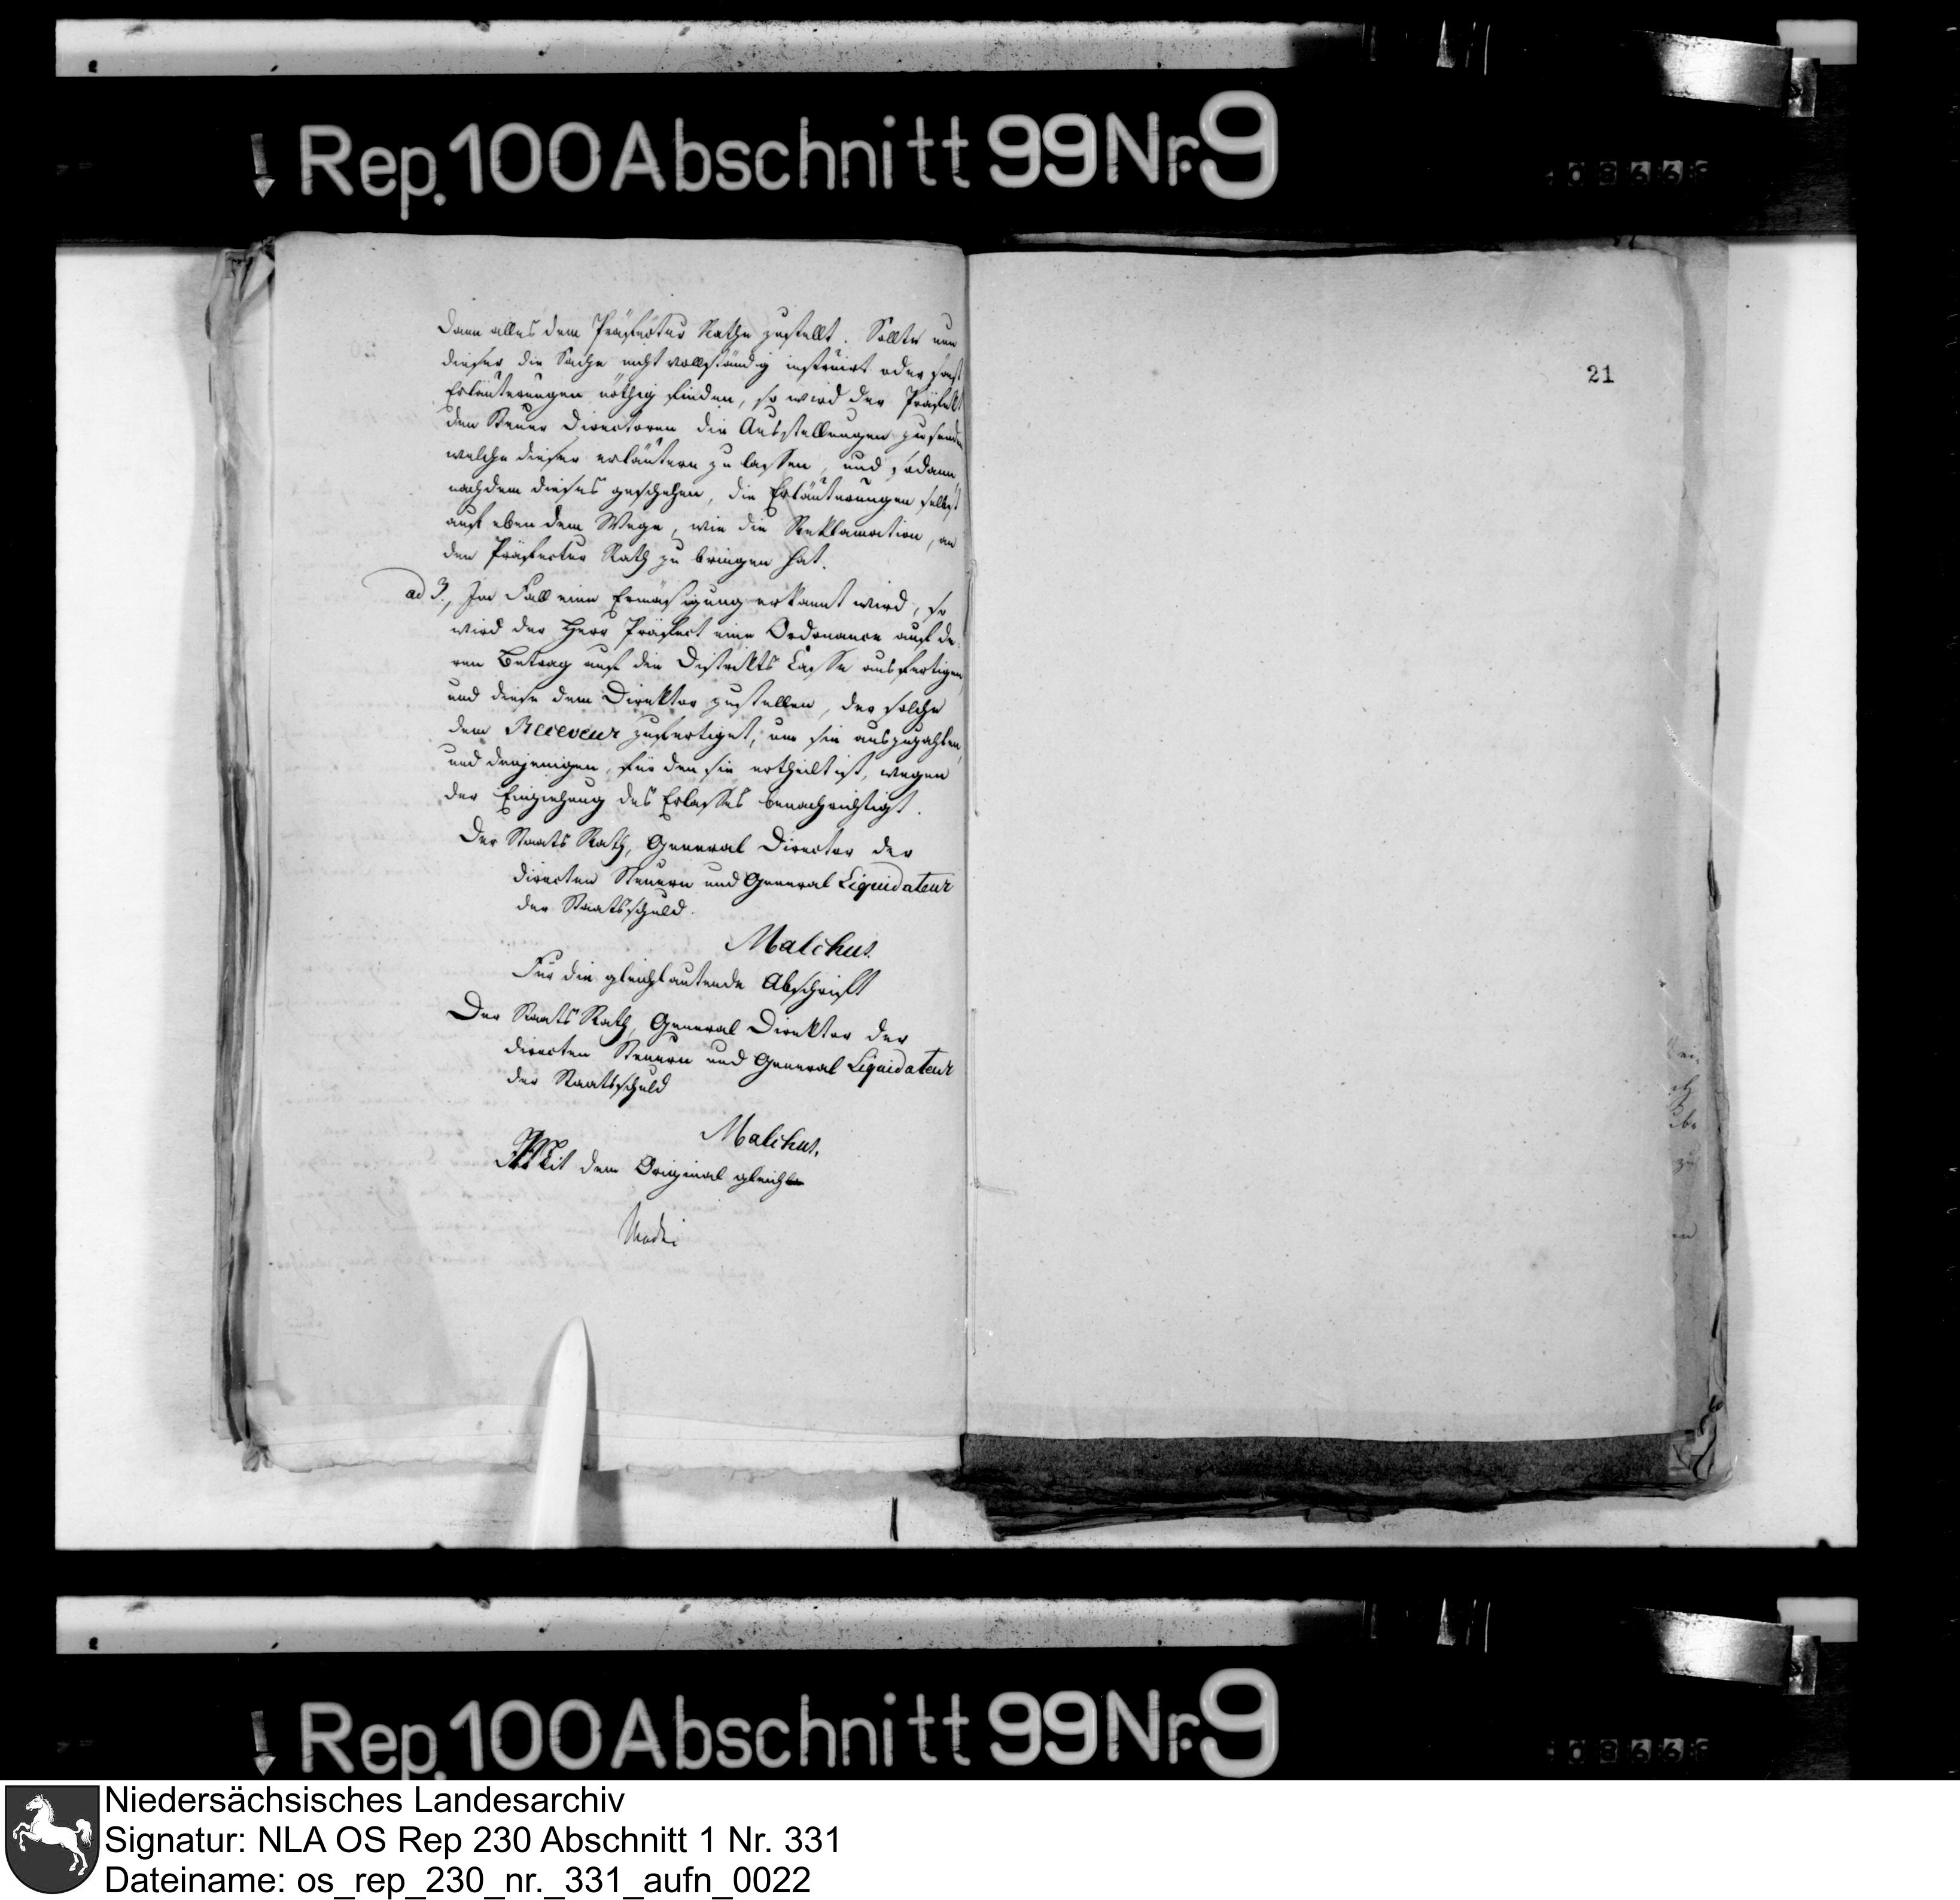 Rep. 100 Abschnitt 99 Nr. 9
dann alles dem Präfectur Rathe zustellt. Sollte nun
dieser die Sache nicht vollständig instruirt oder sonst
Erläuterungen nöthig finden, so wird der Präfekt
den Steuer Directoren die Ausstellungen zusenden
welche dieser erläutern zu lassen, und sodann,
nachdem dieses geschehen, die Erläuterungen selbst
auf eben dem Wege, wie die Reklamation, an
den Präfectur Rath zu bringen hat.
ad 3., Im Fall eine Ermäßigung erkannt wird, so
wird der Herr Präfect eine Ordonance auf de
ren Betrag auf die Distrikts Casse ausfertigen,
und diese dem Direktor zustellen, der solche
dem Receveur zufertiget, um sie auszuzahlen,
und denjenigen, für den sie ertheilt ist, wegen
der Einziehung des Erlasses benachrichtigt.
Der Staats Rath, General Director der
directen Steuern und General Liquidateur
der Staatsschuld.
Malchus.
Für die gleichlautende Abschrift
Der Staats Rath, General Direktor der
directen Steuern und General Liquidateur
der Staatsschuld
Malchus.
Mit dem Original gleich
21
Rep. 100 Abschnitt 99 Nr. 9
Niedersächsisches Landesarchiv
Signatur: NLA OS Rep 230 Abschnitt 1 Nr. 331
Dateiname: os_rep_230_nr._331_aufn_0022